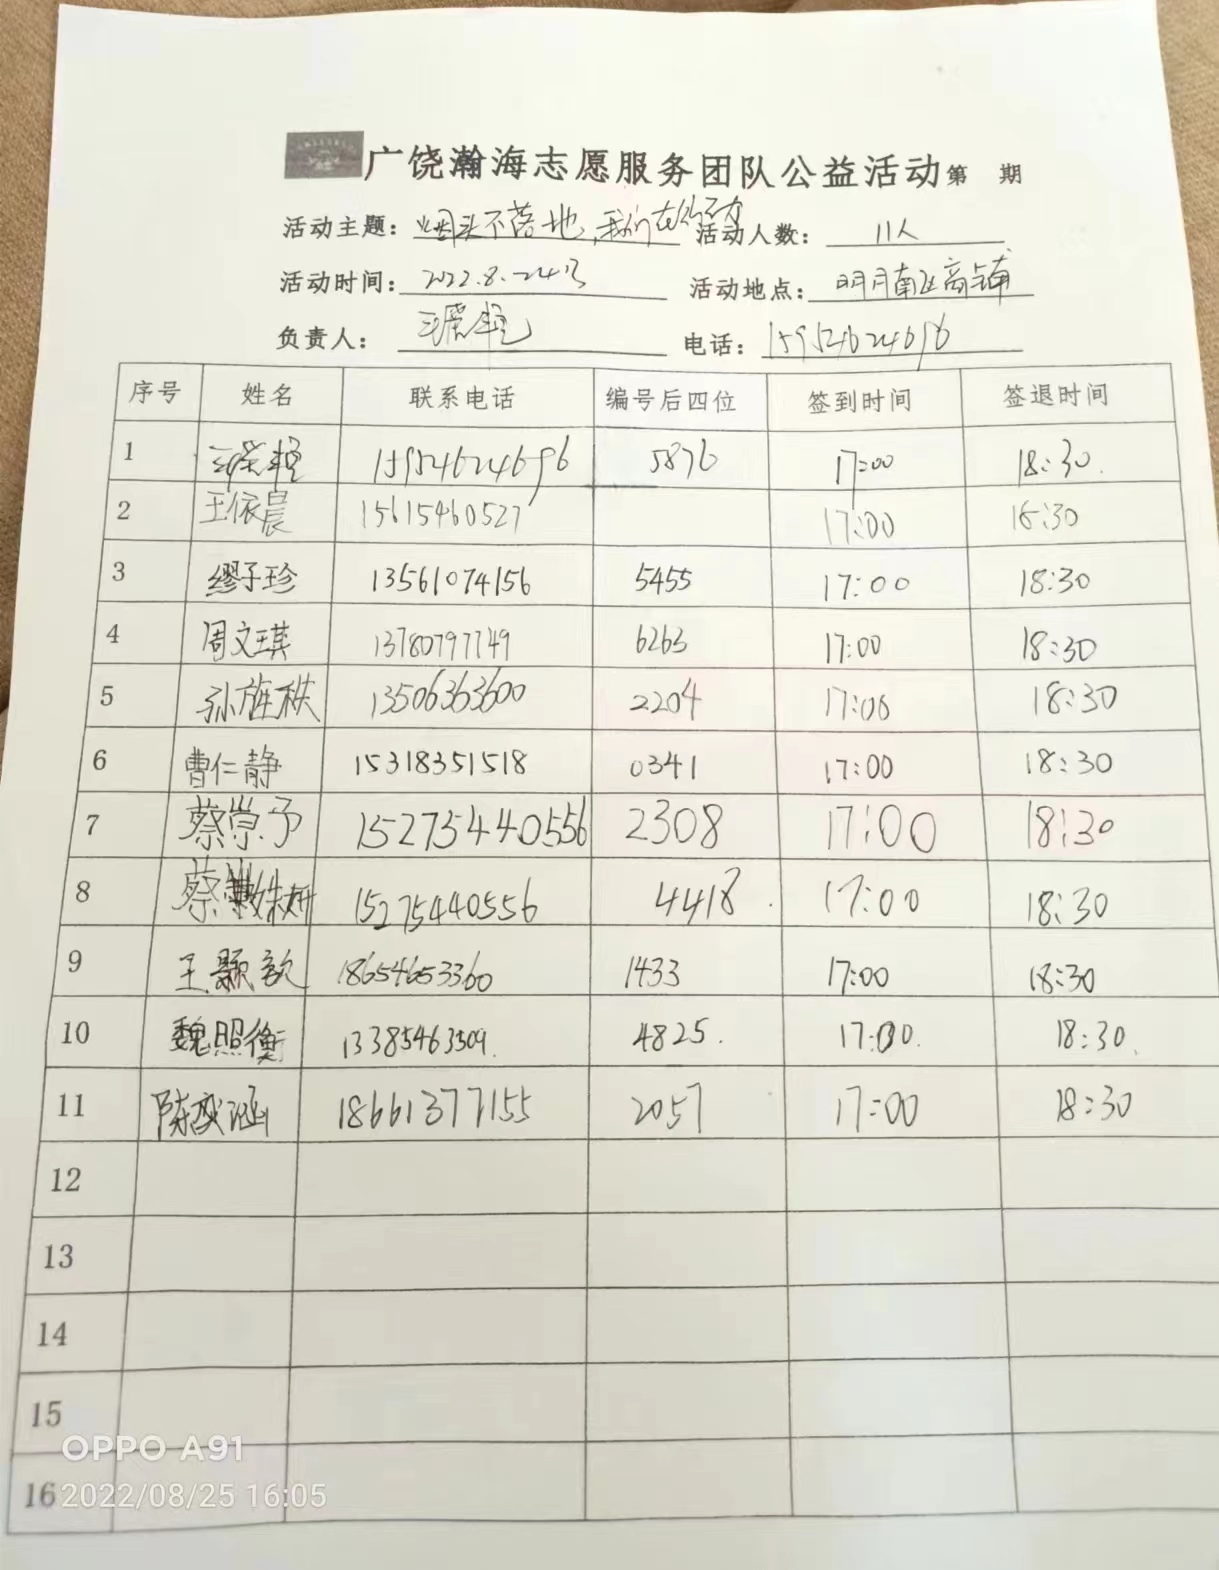 广饶瀚海志愿服务团队公益活动第 期
活动主题: 烟头不落地,我们在行动 活动人数: 11人
活动时间: 2022.8.24号 活动地点: 明月南区商铺
负责人: 电话: 15954624696
序号 姓名 联系电话 编号后四位 签到时间 签退时间
1 15954624696 5876 17:00 18:30.
2 王依晨 15615460527 17:00 18:30
3 缪子珍 13561074156 5455 17:00 18:30
4 周文琪 13780797749 6263 17:00 18:30
5 13506363600 2204 17:00 18:30
6 曹仁静 15318351518 0341 17:00 18:30
7 蔡崇予 15275440556 2308 17:00 18:30
8 15275440556 4418. 17:00 18:30
9 王颢歆 18654653360 1433 17:00 18:30
10 魏照衡 13385463509. 4825. 17:00. 18:30.
11 18661377155 2057 17:00 18:30
12
13
14
15
16
OPPO A91
2022/08/25 16:05